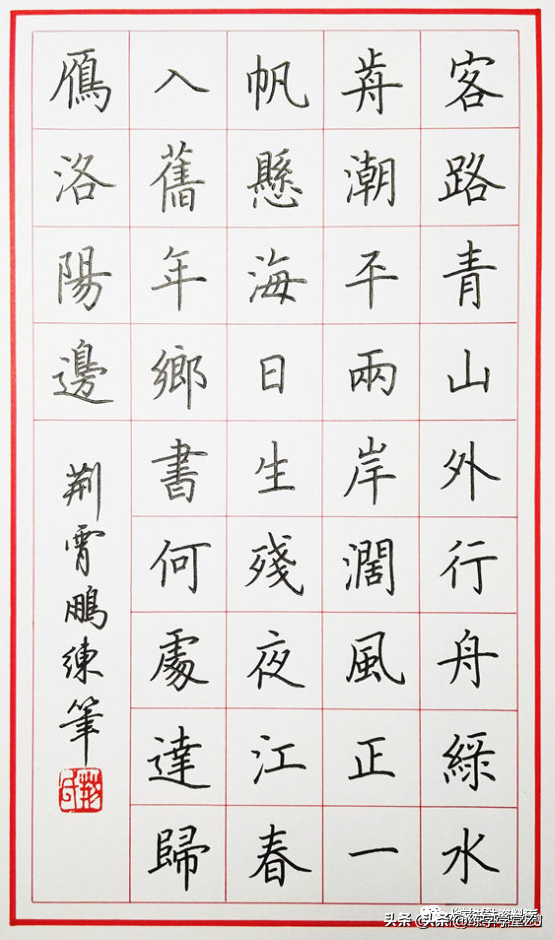 客路青山外行舟綠水
歬潮平兩岸濶風正一
帆懸海日生殘夜江春
入舊年鄉書何處達歸
鴈洛陽邊
荊霄鵬練筆
头条